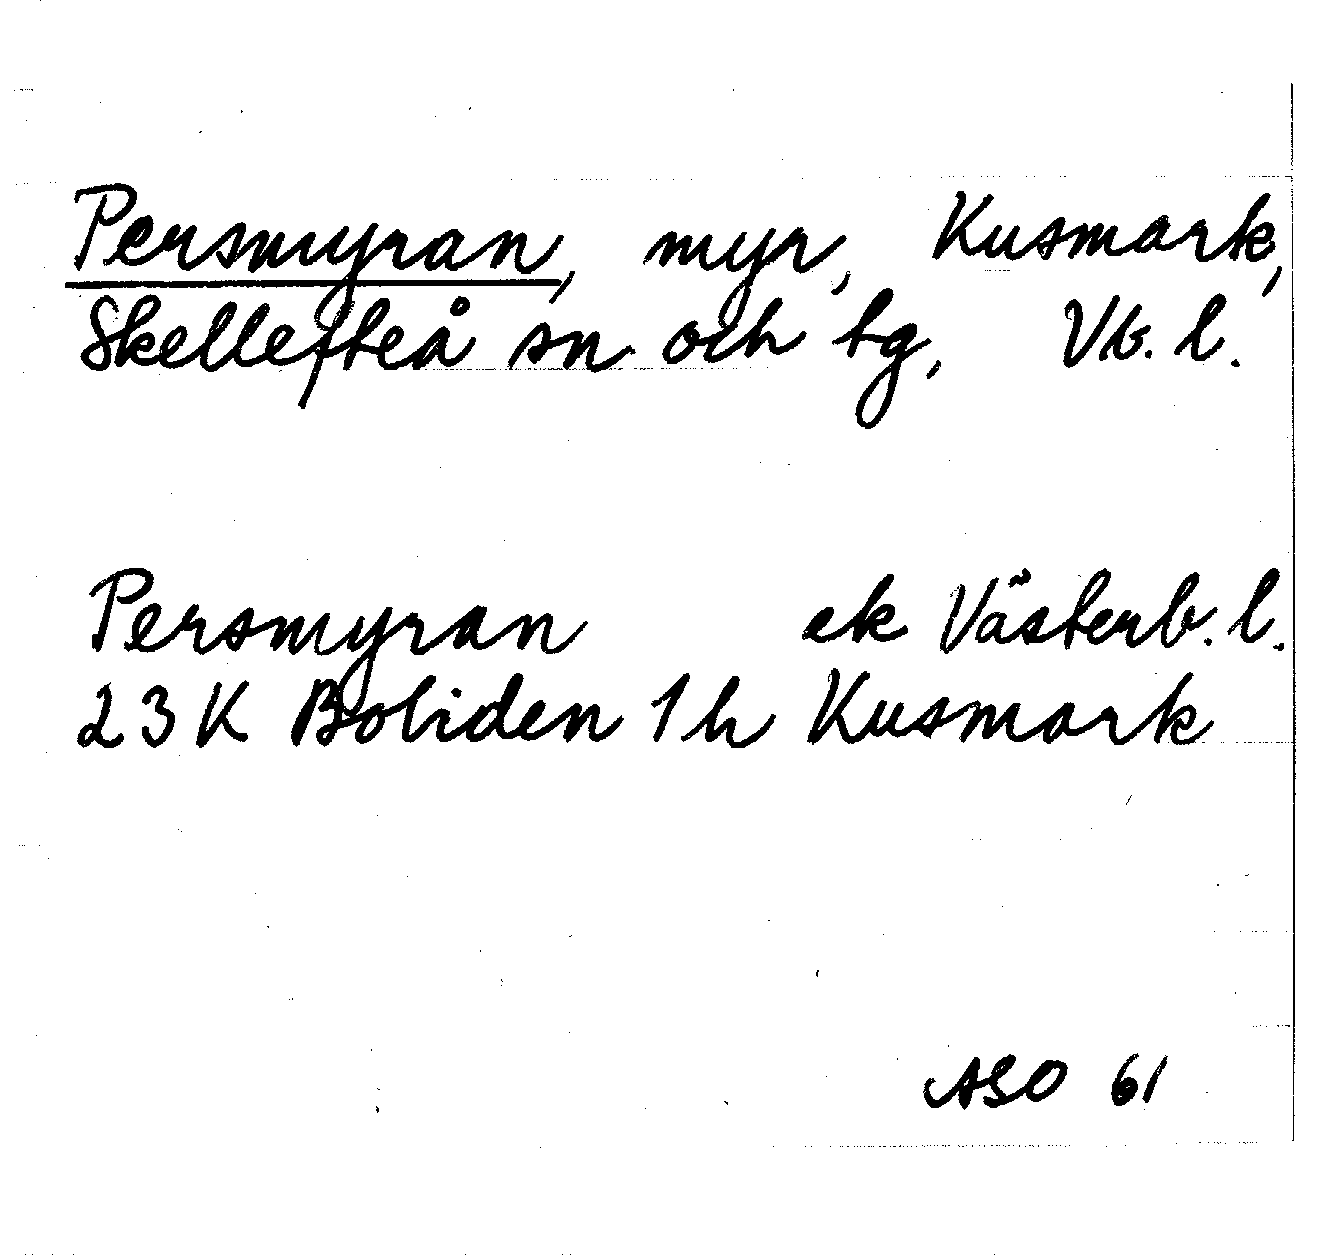 Persmyran, myr, Kusmark,
Skellefteå sn och tg, Vb. l.
Persmyran ek Västerb. l.
23K Boliden 1h Kusmark
ASO 61